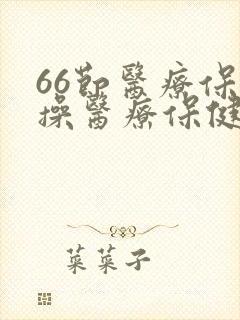 66節醫療保
操醫療保健
菜菜子